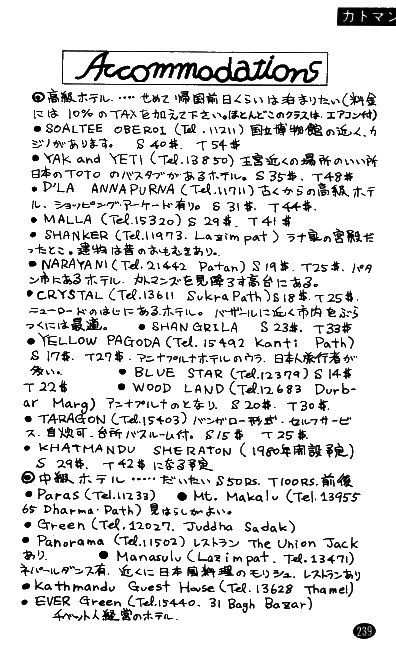 カトマン
Accommodations
◉高級ホテル.‥‥せめて帰国前日くらいは泊まりたい(料金
には10%のTAXを加えて下さい。ほとんどこのクラスは、エアコン付)
•SOALTEE OBEROI (Tel.11211) 国立博物館の近く、カ
ジノがあります。 S 40$. T 54$
•YAK and YETI (Tel.13850) 王宮近くの場所のいい所
日本のTOTOのバスタブがあるホテル。S 35$. T 48$
•D'LA ANNAPURNA (Tel.11711) 古くからの高級ホテ
ル、ショッピング・アーケード有り。 S 31$. T 44$.
•MALLA (Tel.15320) S 29$. T 41$
•SHANKER (Tel.11973. Lazimpat) ラナ家の宮殿だ
ったとこ。建物は昔のおもむきあり。
•NARAYANI (Tel.21442 Patan) S 19$. T 25$. パタ
ン市にあるホテル. カトマンズを見降ろす高台にある。
•CRYSTAL (Tel.13611 Sukra Path) S 18$. T 25$.
ニューロードのはじにあるホテル。バザールに近く市内をぶら
つくには最適。 •SHANGRILA S 23$. T 33$
•YELLOW PAGODA (Tel.15492 Kanti Path)
S 17$. T 27$. アンナプルナホテルのウラ. 日本人旅行者が
多い。 •BLUE STAR (Tel.12379) S 14$
T 22$ •WOOD LAND (Tel.12683 Durb-
ar Marg) アンナプルナのとなり. S 20$. T 30$.
•TARAGON (Tel.15403) バンガロー形式・セルフサービ
ス. 自炊可. 台所バスルーム付。 S 15$ T 25$.
•KHATMANDU SHERATON (1980年開設予定)
S 29$. T 42$になる予定
◉中級ホテル‥‥‥だいたい S50RS. T100RS.前後
•Paras (Tel.11233) •Mt. Makalu (Tel.13955
65 Dharma Path) 見はらしがよい。
•Green (Tel.12027. Juddha Sadak)
•Panorama (Tel.11502) レストラン The Union Jack
あり. •Manasulu (Lazimpat. Tel.13471)
ネパールダンス有. 近くに日本国料理のモリシュ. レストランあり
•Kathmandu Guest House (Tel.13628 Thamel)
•EVER Green (Tel.15440. 31 Bagh Bazar)
チベット人経営のホテル.
239